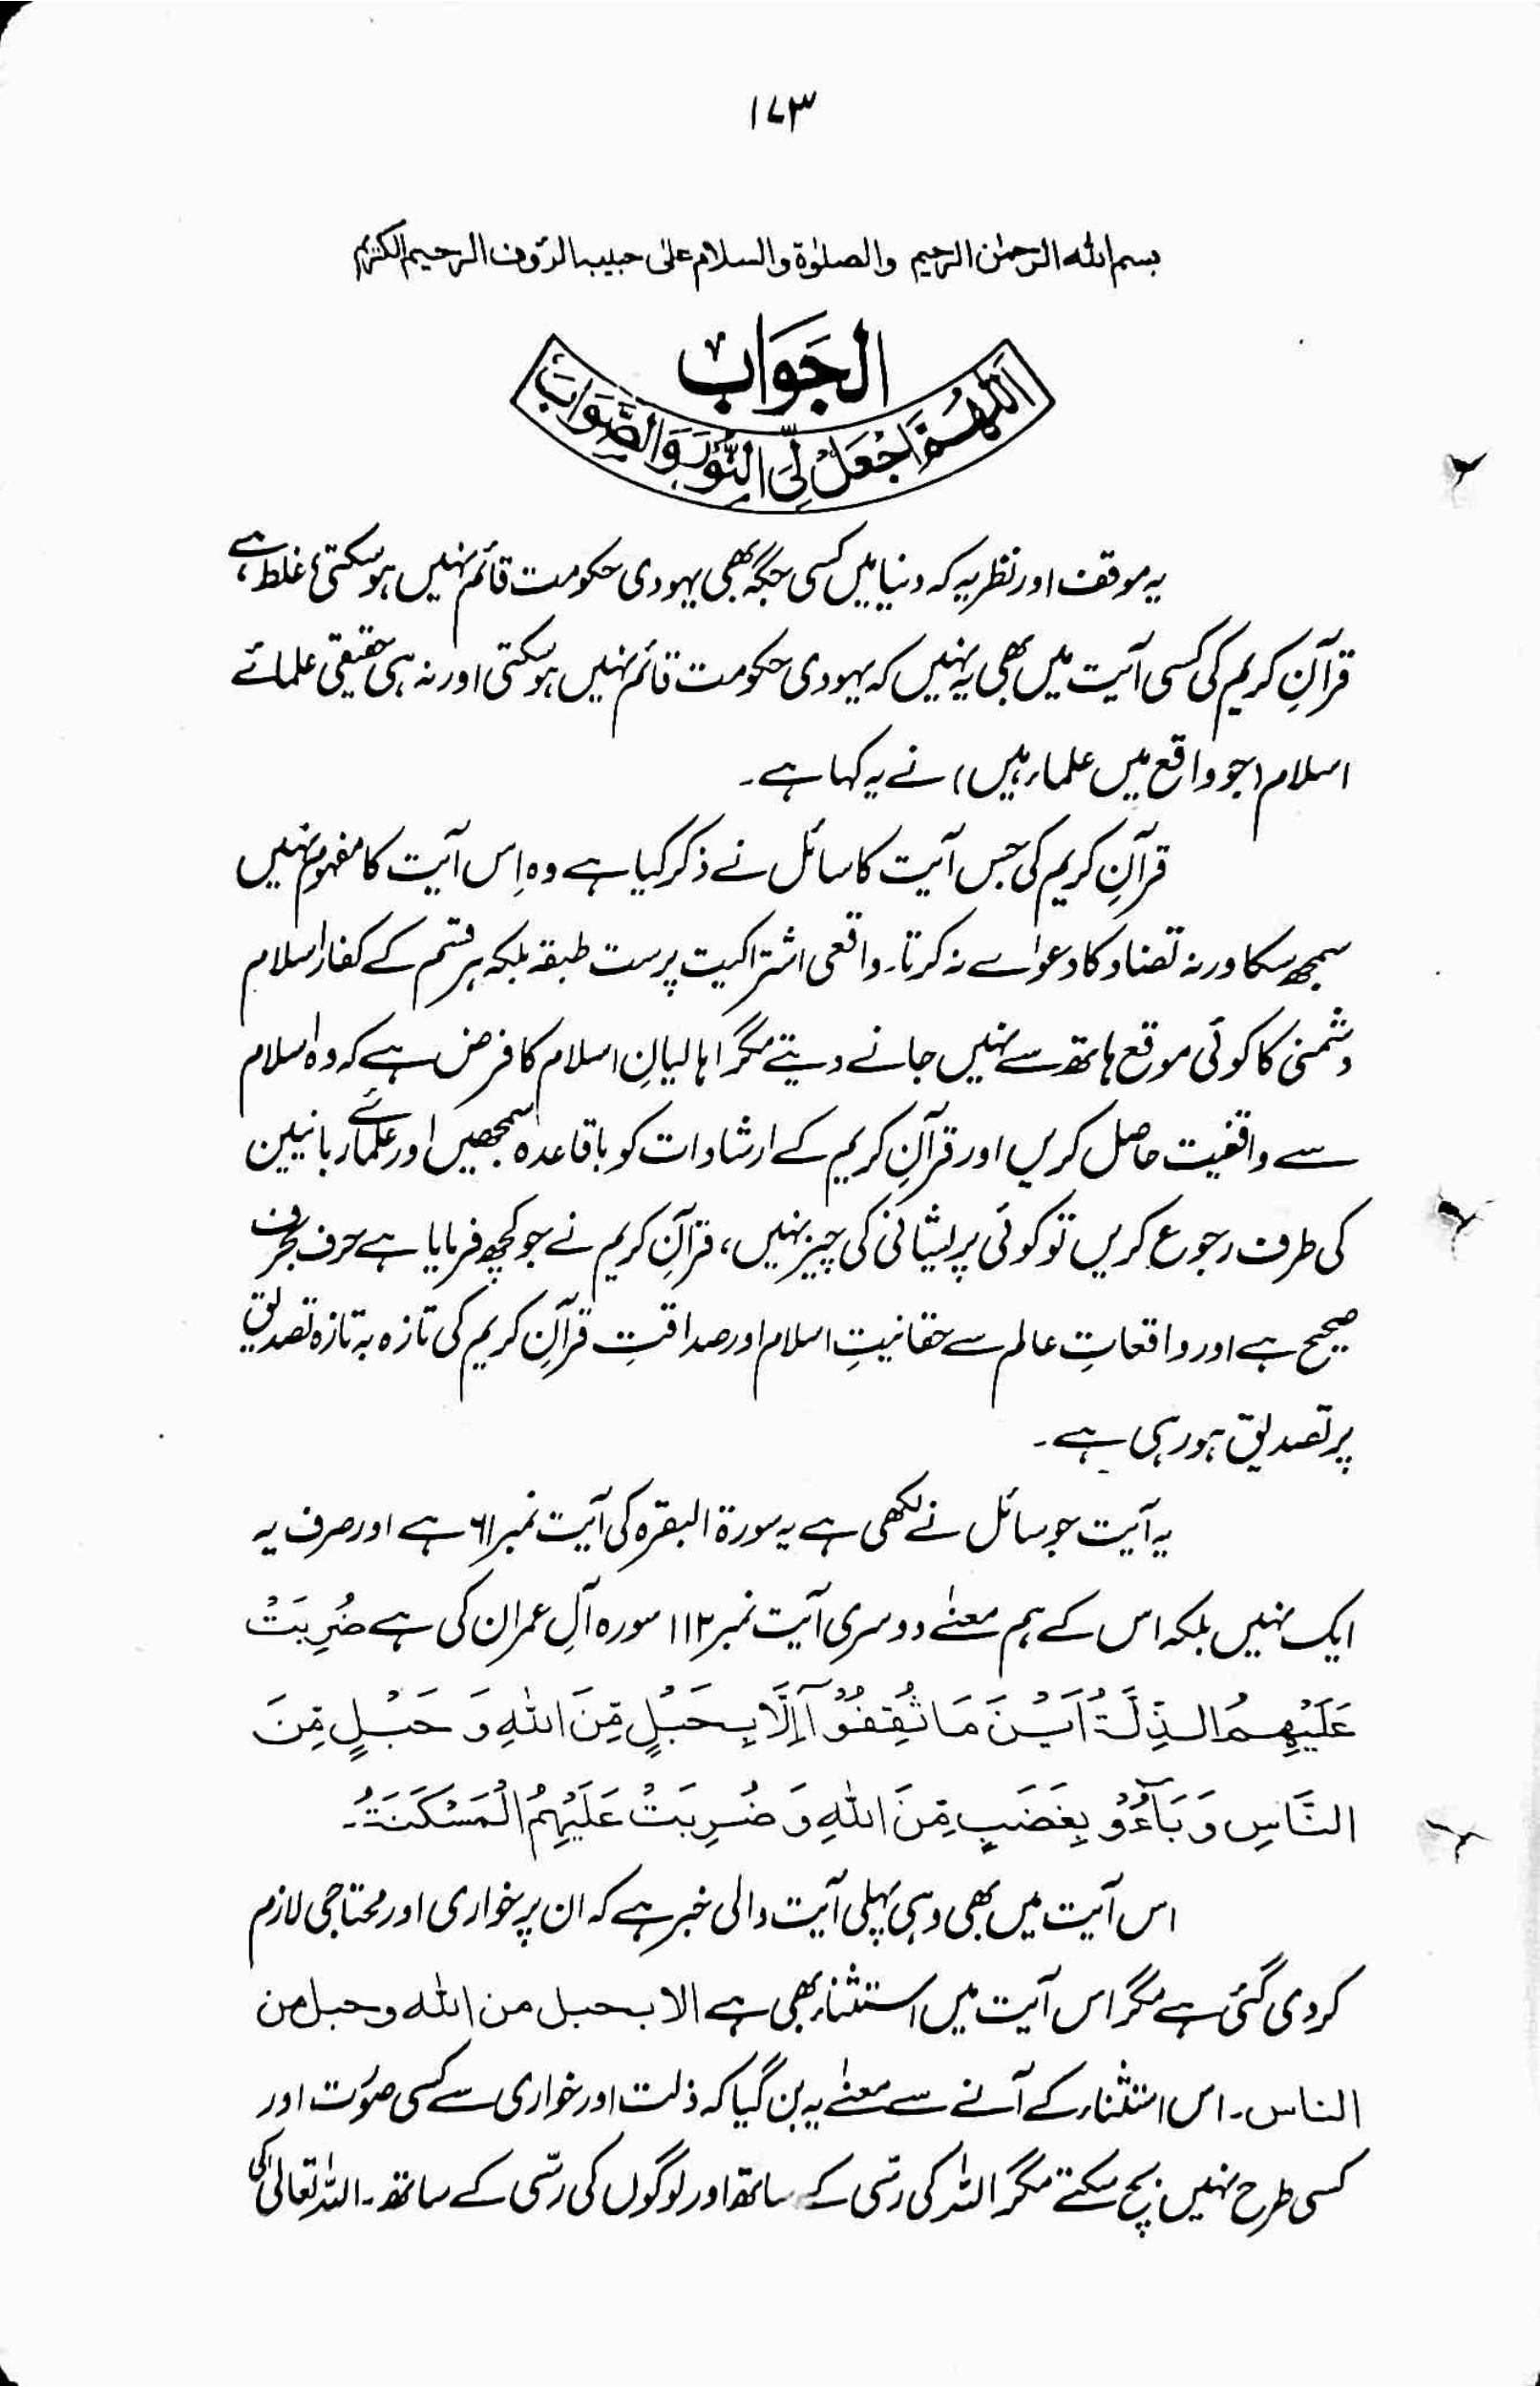 ۱۷۳
بسم الله الرحمٰن الرحيم والصلوٰة والسلام علىٰ حبيبه الرؤف الرحيم الكريم
الجَوَاب
اَللّٰهُمَّ اجْعَلْ لِّیَ النُّوْرَ وَالصَّوَابَ
یہ موقف اور نظریہ کہ دنیا میں کسی جگہ بھی یہودی حکومت قائم نہیں ہو سکتی، غلط ہے،
قرآنِ کریم کی کسی آیت میں بھی یہ نہیں کہ یہودی حکومت قائم نہیں ہو سکتی اور نہ ہی حقیقی علمائے
اسلام (جو واقع میں علماء ہیں) نے یہ کہا ہے۔
قرآنِ کریم کی جس آیت کا سائل نے ذکر کیا ہے وہ اِس آیت کا مفہوم نہیں
سمجھ سکا ورنہ تضاد کا دعوٰے نہ کرتا۔ واقعی اشتراکیت پرست طبقہ بلکہ ہر قسم کے کفار اسلام
دشمنی کا کوئی موقع ہاتھ سے نہیں جانے دیتے مگر اہالیانِ اسلام کا فرض ہے کہ وہ اسلام
سے واقفیت حاصل کریں اور قرآنِ کریم کے ارشادات کو باقاعدہ سمجھیں اور علمائے ربانیین
کی طرف رجوع کریں تو کوئی پریشانی کی چیز نہیں، قرآنِ کریم نے جو کچھ فرمایا ہے حرف بحرف
صحیح ہے اور واقعاتِ عالم سے حقانیتِ اسلام اور صداقتِ قرآنِ کریم کی تازہ بہ تازہ تصدیق
پر تصدیق ہو رہی ہے۔
یہ آیت جو سائل نے لکھی ہے یہ سورۃ البقرہ کی آیت نمبر ۶۱ ہے اور صرف یہ
ایک نہیں بلکہ اس کے ہم معنےٰ دوسری آیت نمبر ۱۱۲ سورہ آلِ عمران کی ہے ضُرِبَتْ
عَلَيْهِمُ الذِّلَّةُ اَيْنَ مَا ثُقِفُوْٓا اِلَّا بِحَبْلٍ مِّنَ اللهِ وَ حَبْلٍ مِّنَ
النَّاسِ وَ بَآءُوْ بِغَضَبٍ مِّنَ اللهِ وَ ضُرِبَتْ عَلَيْهِمُ الْمَسْكَنَةُ۔
اس آیت میں بھی وہی پہلی آیت والی خبر ہے کہ ان پر خواری اور محتاجی لازم
کر دی گئی ہے مگر اس آیت میں استثناء بھی ہے الا بحبل من الله وحبل من
الناس۔ اس استثناء کے آنے سے معنےٰ یہ بن گیا کہ ذلت اور خواری سے کسی صورت اور
کسی طرح نہیں بچ سکتے مگر اللہ کی رسّی کے ساتھ اور لوگوں کی رسّی کے ساتھ۔ اللہ تعالیٰ کی